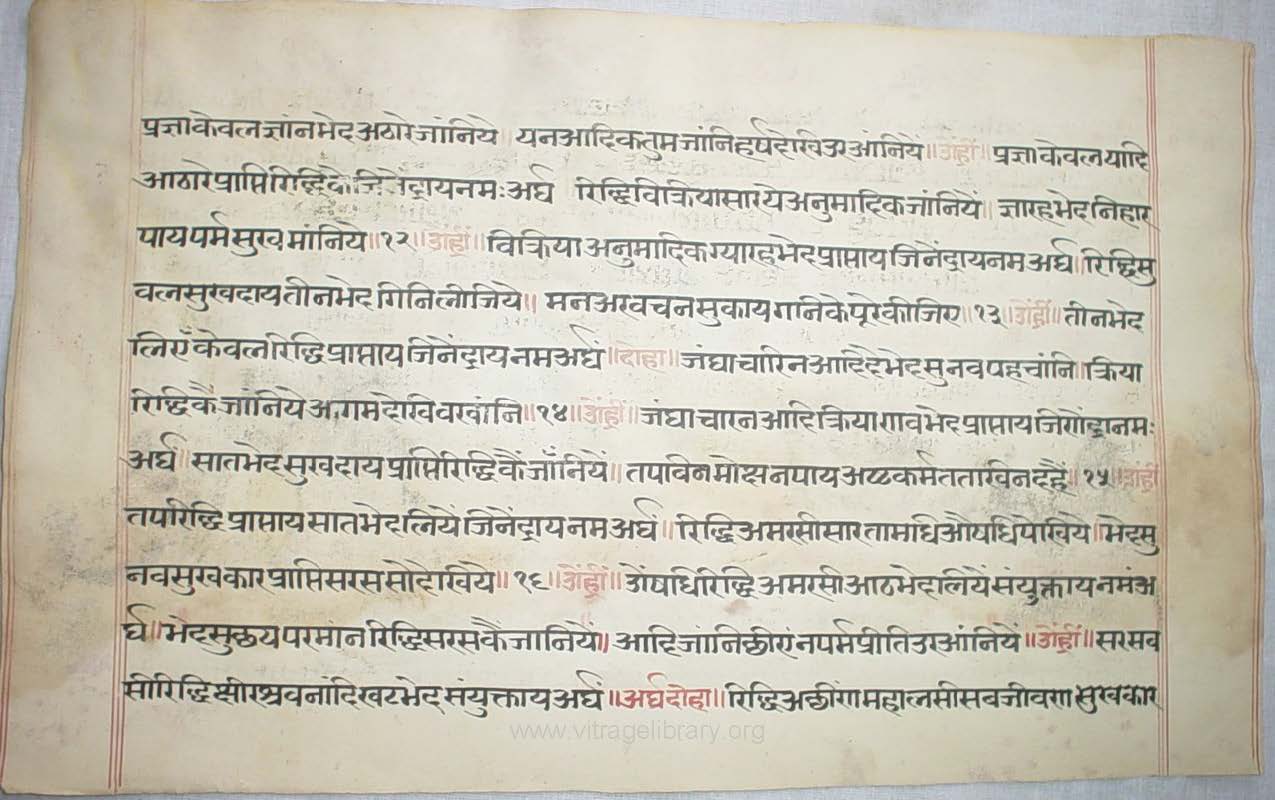 प्रज्ञाकेवलज्ञांनभेदअठारेजांनिये॥ यनआदिकतुमजांनिहर्षदेखिउरआंनियें॥ॐह्रीं॥प्रज्ञाकेवलयादि
आठारेप्राप्तिरिद्धि जिनेंद्रायनमःअर्घ रिद्धिविक्रियासारयेअनुमादिकजांनियें॥ ज्ञारहभेदनिहार
पायपर्मसुखमांनिये॥१२॥ॐह्रीं॥विक्रियाअनुमादिकग्यारहभेदप्राप्तायजिनेंद्रायनमअर्घ॥रिद्धिसु
वलसुखदायतीनभेदगिनिलीजिये॥ मनअरवचनसुकाय कीजिए॥१३॥ॐह्रीं॥तीनभेद
लिएँकेवलरिद्धिप्राप्तायजिनेंद्रायनमअर्घं॥दोहा॥जंघाचारिनआदिदैभेदसुनवपहचांनि॥क्रिया
रिद्धिकैजांनियेआगमदेखिवखांनि॥१४॥ॐह्रीं॥जंघाचारनआदिक्रियाणवभेदप्राप्तायजिणेंद्रानमः
अर्घ॥ सातभेदसुखदायप्राप्तिरिद्धिकैंजाँनियें॥ तपाविनमोक्षनपायअष्टकर्मततखिनदहैं॥१५॥ॐह्रीं
तपरिद्धिप्राप्तायसातभेदलियेंजिनेंद्रायनमअर्घं॥ रिद्धिअमरसीसारतामधिऔषधिपेखिये॥भेदसु
नवसुखकारप्राप्तिसरससोदेखिये॥१६॥ॐह्रीं॥ओंषधिरिद्धिअमरसीआठभेदलियेंसंयुक्तायनमंअ
र्घ॥भेदसुछयपरमांनरिद्धिसरसकैंजानियें॥आदिजांनिछीरांनपर्मप्रीतिउरआंनियें॥ॐह्रीं॥सरसव
सीरिद्धिक्षीरश्रवनांदिखटभेदसंयुक्तायअर्घं॥अर्घदोहा॥रिद्धिअछीणमहालसीसवजीवणसुखकार
www.vitragelibrary.org